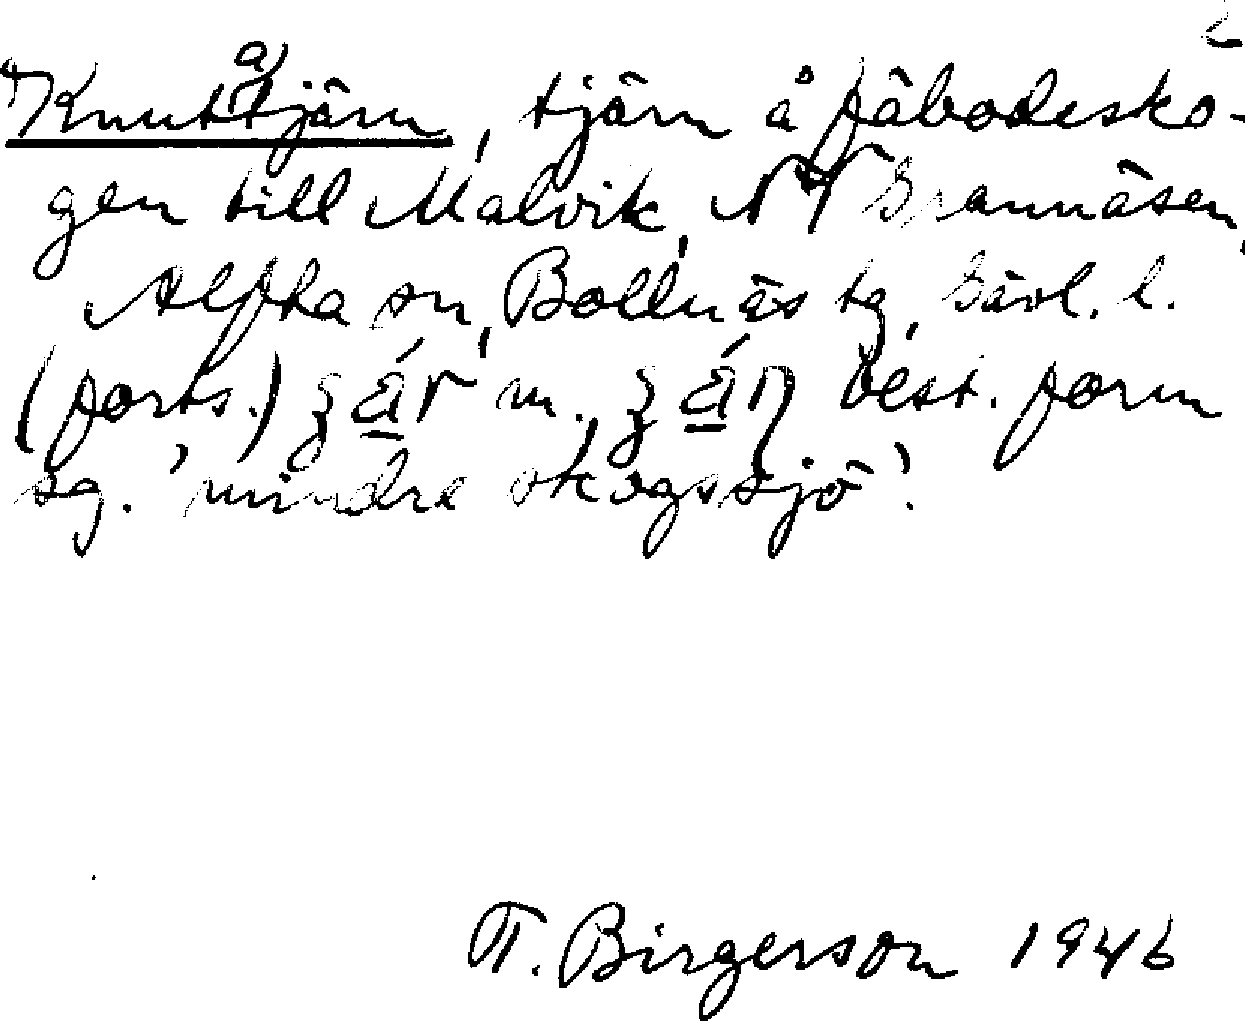 2
Knuttatjärn, tjärn å fäbodesko-
gen till Malvik, NV Grannäsen,
Alfta sn, Bollnäs tg, Gävl. l.
(forts.) m. best. form
sg. 'mindre skogssjö'.
T. Birgerson 1946